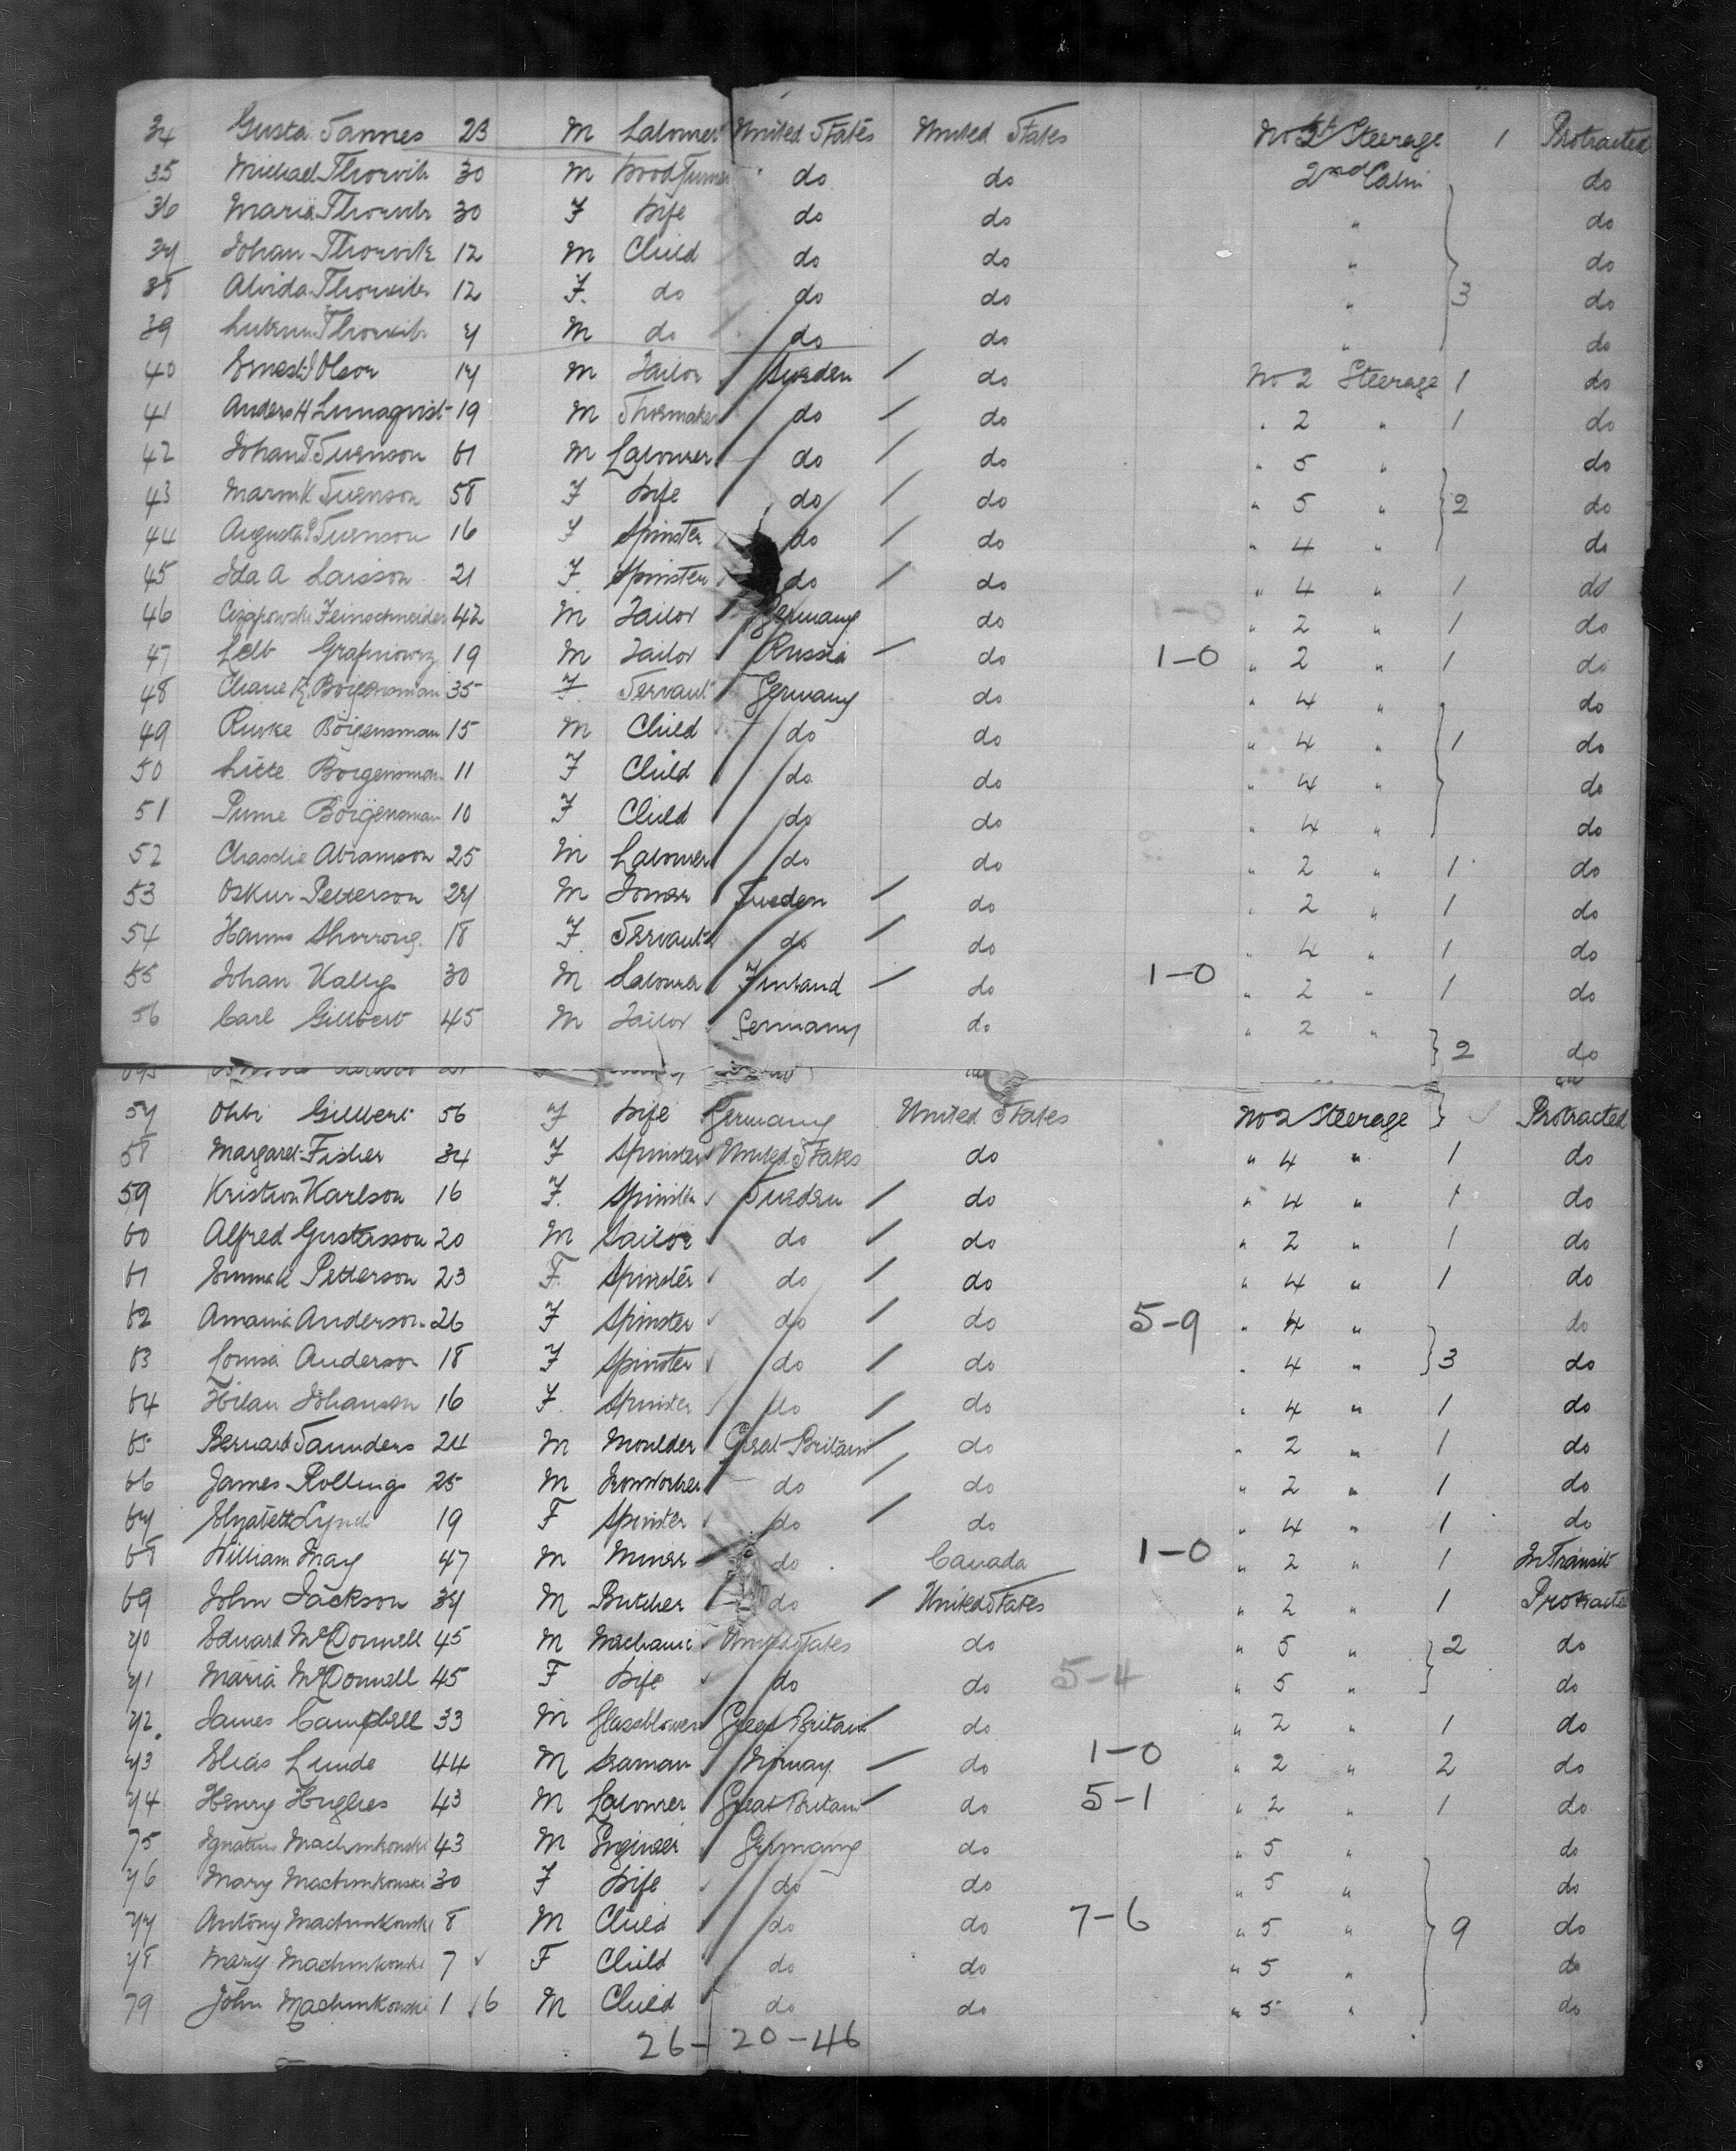 34 Gusta Tannes 23 M Labourer United States United States No 2 Steerage 1 Protracted
35 Michael Thorvik 30 M Wood Turner do do 2nd Cabin do
36 Maria Thorvik 30 F Wife do do " do
37 Johan Thorvik 12 M Child do do " do
38 Alvida Thorvik 12 F. do do do " 3 do
39 Thorvik 7 M do do do " do
40 Ernest J Olson 17 M Tailor Sweden do No 2 Steerage 1 do
41 Anders H Lundqvist 19 M Shoemaker do do " 2 " 1 do
42 Johan T. Svenson 61 M Labourer do do " 5 " do
43 Svenson 58 F Wife do do " 5 " 2 do
44 Augusta Svenson 16 F Spinster do do " 4 " do
45 Ida A Larsson 21 F. Spinster do do " 4 " 1 do
46 Feinschneider 42 M Tailor Germany do 1-0 " 2 " 1 do
47 19 M Tailor Russia do 1-0 " 2 " 1 do
48 35 F Servant Germany do " 4 " do
49 Borgensman 15 M Child do do " 4 " 1 do
50 Borgensman 11 F Child do do " 4 " do
51 Borgensman 10 F Child do do " 4 " do
52 Abramson 25 M Labourer do do " 2 " 1 do
53 Oskur Petterson 27 M Joiner Sweden do " 2 " 1 do
54 18 F. Servant do do " 4 " 1 do
55 Johan 30 M Labourer Finland do 1-0 " 2 " 1 do
56 Carl Gillbert 45 M Tailor Germany do " 2 " 2 do
57 Gillbert 56 F Wife Germany United States No 2 Steerage Protracted
58 Margaret Fisher 34 F Spinster United States do " 4 " 1 do
59 Kristron Karlson 16 F. Spinster Sweden do " 4 " 1 do
60 Alfred Gustasson 20 M Sailor do do " 2 " 1 do
61 Petterson 23 F. Spinster do do " 4 " 1 do
62 Anderson 26 F Spinster do do 5-9 " 4 " do
63 Lousa Anderson 18 F Spinster do do " 4 " 3 do
64 Johanson 16 F. Spinster do do " 4 " 1 do
65 Bernard Saunders 24 M Moulder Great Britain do " 2 " 1 do
66 James Rollings 25 M Ironworker do do " 2 " 1 do
67 Lynch 19 F Spinster do do " 4 " 1 do
68 William 47 M Miner do Canada 1-0 " 2 " 1 In Transit
69 John Jackson 37 M Butcher do United States " 2 " 1 Protracted
70 Eduard McDonnell 45 M Mechanic United States do " 5 " 2 do
71 Maria McDonnell 45 F Wife do do 5-4 " 5 " do
72. James Campbell 33 M Glassblower Great Britain do " 2 " 1 do
73 Elias Lunde 44 M Seaman Norway do 1-0 " 2 " 2 do
74 Henry Hughes 43 M Labourer Great Britain do 5-1 " 2 " 1 do
75 Ignatius Machinkowski 43 M Engineer Germany do " 5 " do
76 Mary Machinkowski 30 F Wife do do " 5 " do
77 Antony Machinkowski 8 M Child do do 7-6 " 5 " 9 do
78 Mary Machinkowski 7 F Child do do " 5 " do
79 John Machinkowski 1 6 M Child do do " 5 " do
26-20-46